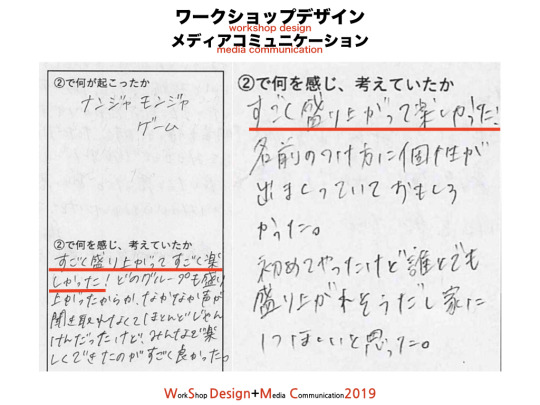 ワークショップデザイン
workshop design
メディアコミュニケーション
media communication
②で何が起こったか
ナンジャモンジャ
ゲーム
②で何を感じ、考えていたか
すごく盛り上がってすごく楽
しかった！どのグループも盛り
上がったからか、なかなか声が
聞き取れなくてほとんどじゃん
けんだったけど、みんなで楽
しくできたのがすごく良かった。
②で何を感じ、考えていたか
すごく盛り上がって楽しかった！
名前のつけ方に個性が
出まくっていておもしろ
かった。
初めてやったけど誰とでも
盛り上がれそうだし家に
1つほしいと思った。
WorkShop Design+Media Communication2019